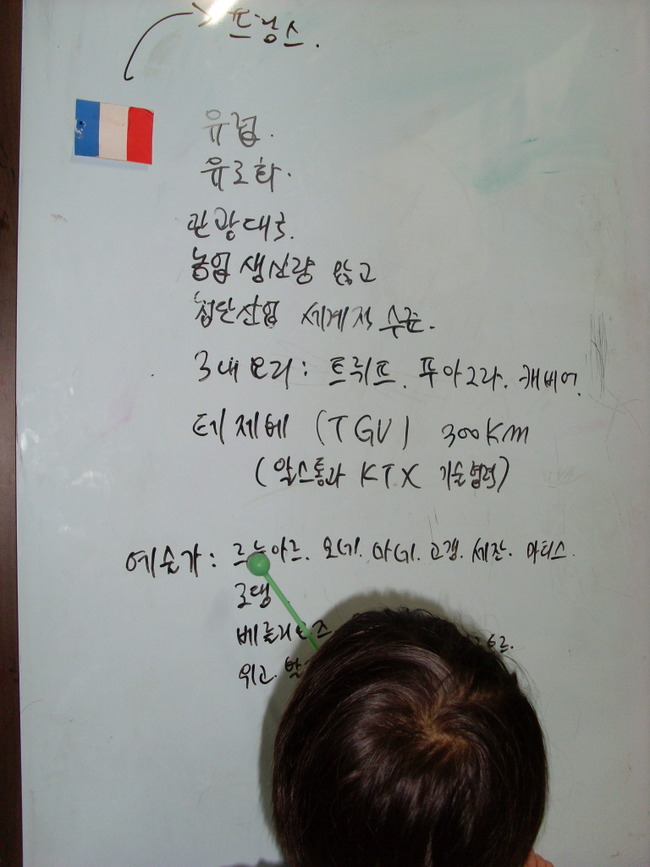 프랑스.
유럽.
유로화.
관광대국.
농업 생산량 많고
첨단산업 세계적 수준.
3대 요리: 트뤼프. 푸아그라. 캐비어.
테제베 (TGV) 300Km
(알스톰과 KTX 기술협력)
예술가: 르누아르. 모네. 마네. 고갱. 세잔. 마티스.
로댕
베를리오즈
위고.